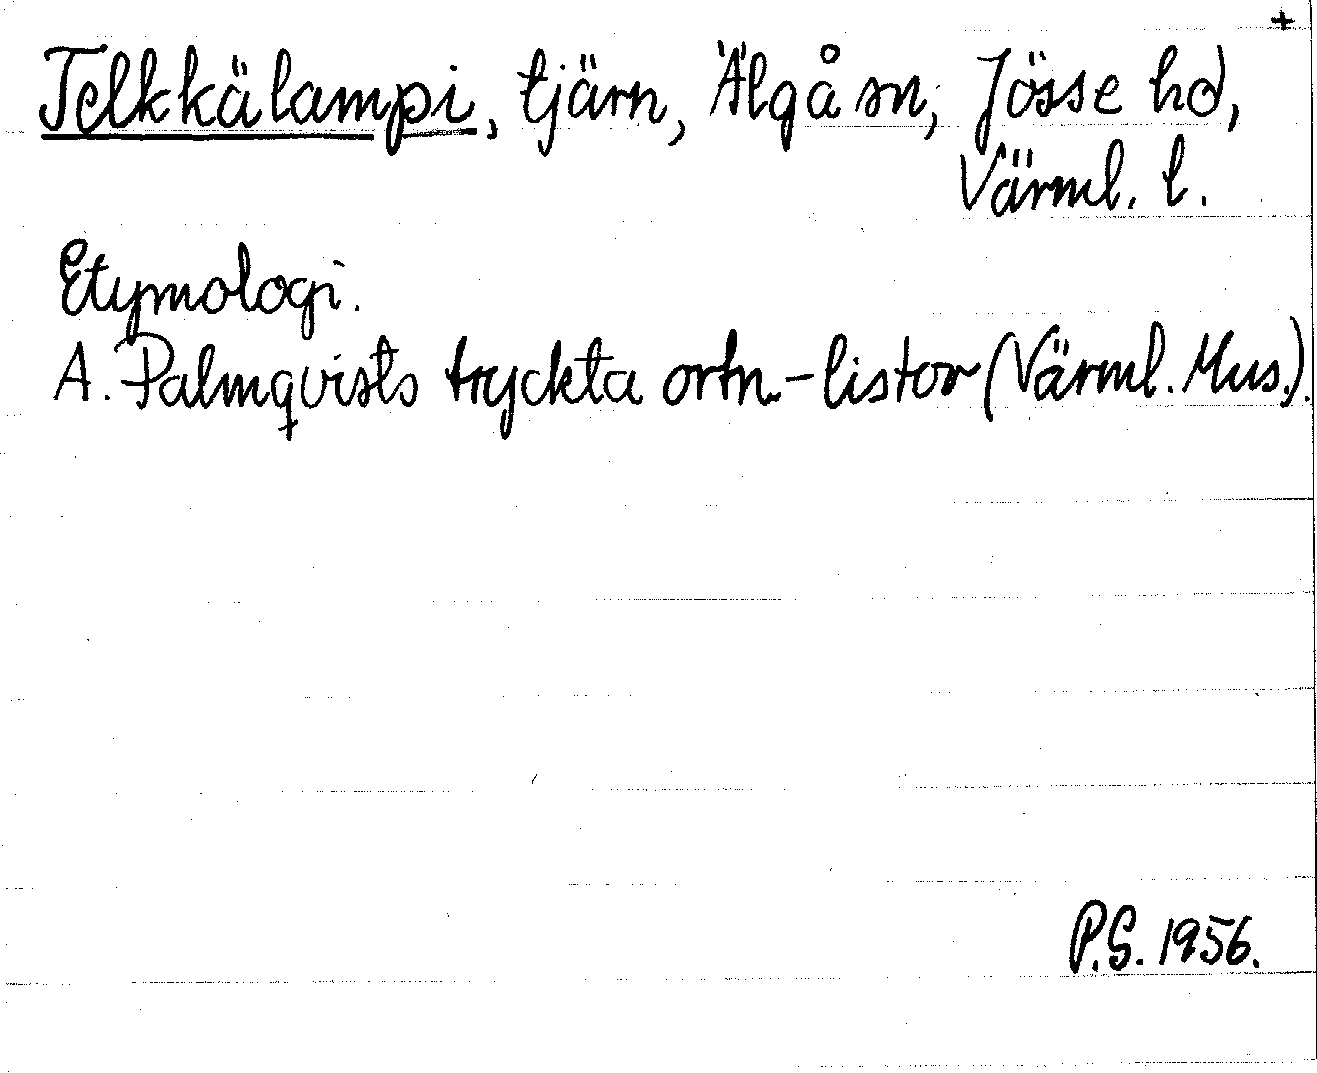 +
Telkkälampi, tjärn, Älgå sn, Jösse hd,
Värml. l.
Etymologi.
A. Palmqvists tryckta ortn.-listor (Värml. Mus.).
P.S. 1956.